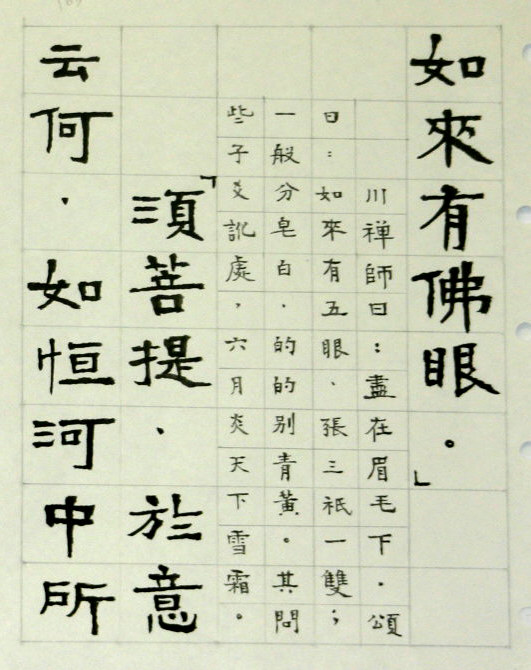 如來有佛眼。」
川禪師曰：盡在眉毛下．頌
曰：如來有五眼．張三祇一雙；
一般分皂白．的的别青黃。其問
些子爻訛處，六月炎天下雪霜。
「須菩提．於意
云何．如恒河中所